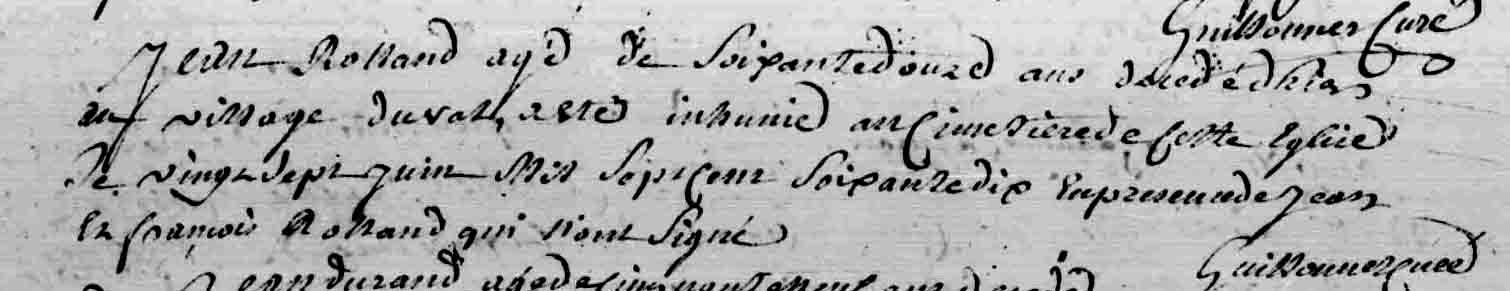 Guillonner Curé
Jean Rolland agé de Soixante douze ans decedé hier
au village du val, a ete inhumé au Cimetiere de Cette Eglise
le vingt Sept juin Mil Sept Cent Soixante dix En presence de Jean
Et francois Rolland qui n'ont Signé
Guillonner Curé
Jean durand agé de Cinquante neuf ans decedé